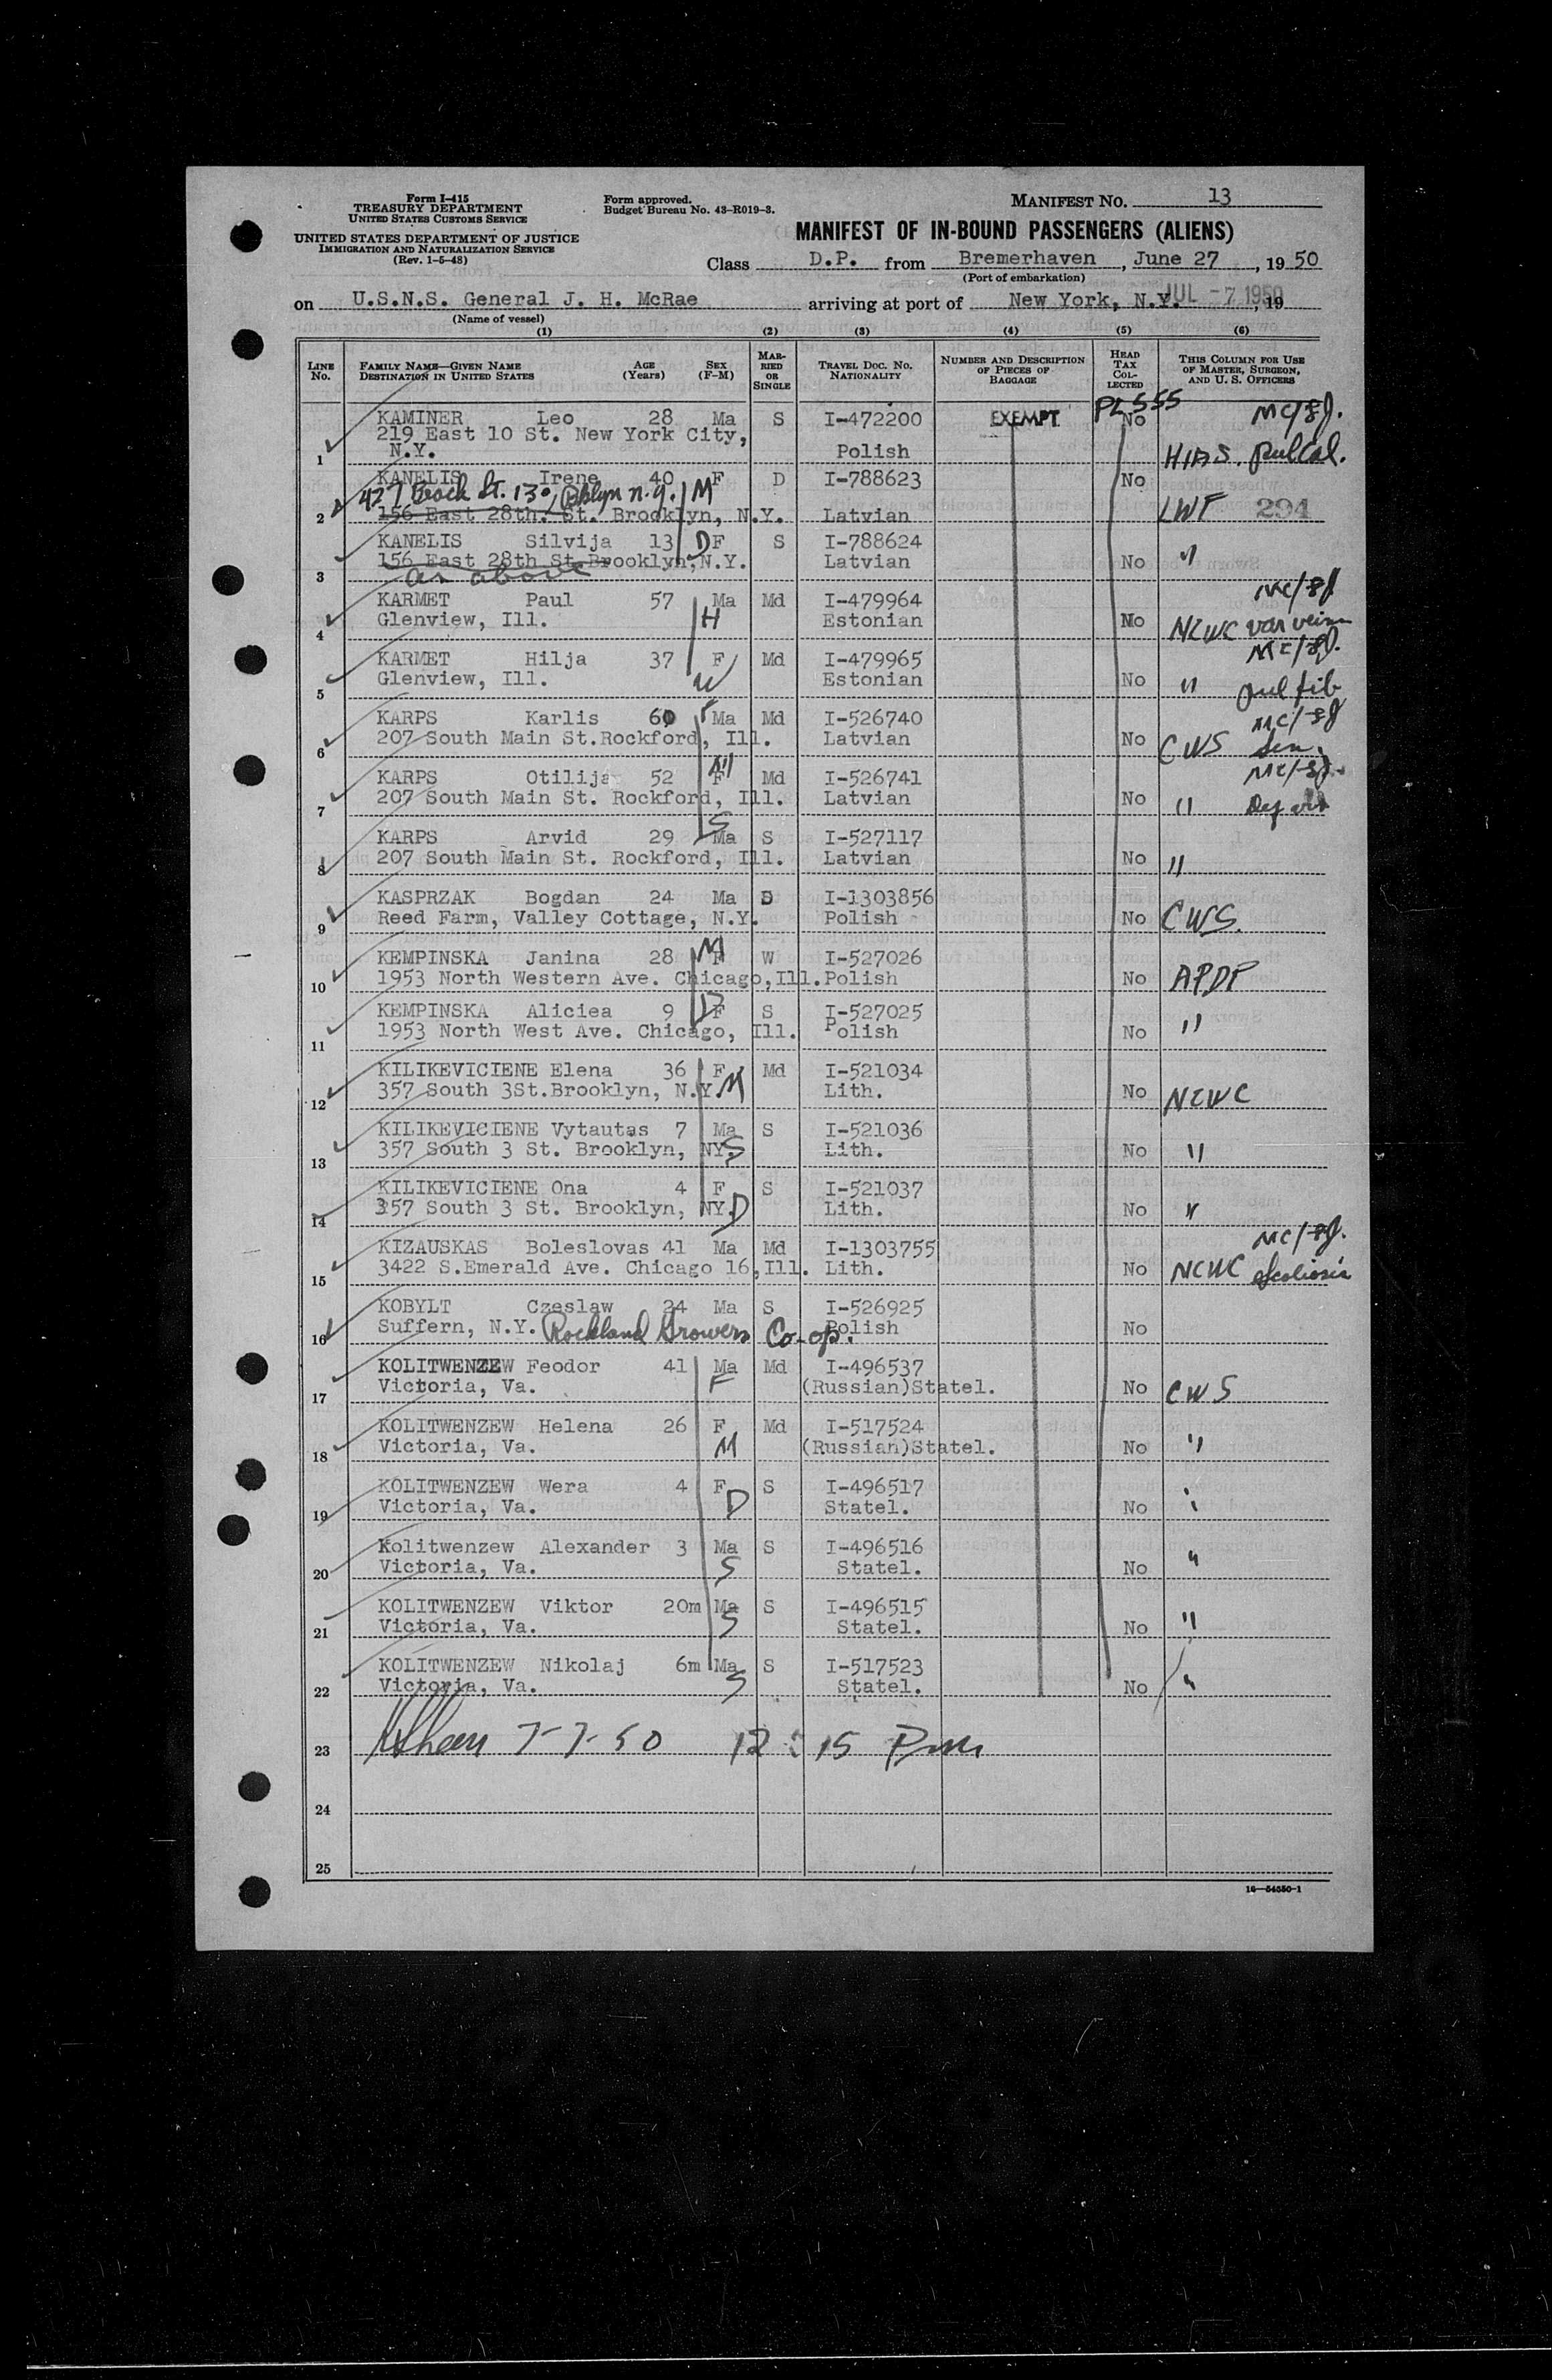 Form I-415
TREASURY DEPARTMENT
UNITED STATES CUSTOMS SERVICE
UNITED STATES DEPARTMENT OF JUSTICE
IMMIGRATION AND NATURALIZATION SERVICE
(Rev. 1-5-48)
Form approved.
Budget Bureau No. 43-R019-3.
MANIFEST NO. 13
MANIFEST OF IN-BOUND PASSENGERS (ALIENS)
Class D.P. from Bremerhaven, June 27, 1950
(Port of embarkation)
on U.S.N.S. General J. H. McRae arriving at port of New York, N.Y. JUL -7 1950, 19
(Name of vessel)
(1) (2) (3) (4) (5) (6)
LINE No. FAMILY NAME—GIVEN NAME DESTINATION IN UNITED STATES AGE (Years) SEX (F-M) MARRIED OR SINGLE TRAVEL DOC. NO. NATIONALITY NUMBER AND DESCRIPTION OF PIECES OF BAGGAGE HEAD TAX COLLECTED THIS COLUMN FOR USE OF MASTER, SURGEON, AND U. S. OFFICERS
PL 555
KAMINER Leo 28 Ma S I-472200 EXEMPT No
219 East 10 St. New York City,
1 N.Y. Polish HIAS.
KANELIS Irene 40 F D I-788623 No
M
2 156 East 28th. St. Brooklyn, N.Y. Latvian LWF 294
KANELIS Silvija 13 D F S I-788624
156 East 28th St. Brooklyn, N.Y. Latvian No "
3 as above
KARMET Paul 57 Ma Md I-479964
4 Glenview, Ill. H Estonian No NCWC var veins
KARMET Hilja 37 F Md I-479965
5 Glenview, Ill. W Estonian No " pul fib
KARPS Karlis 60 F Ma Md I-526740
6 207 South Main St. Rockford, Ill. Latvian No CWS Sen.
KARPS Otilija 52 M F Md I-526741
7 207 South Main St. Rockford, Ill. Latvian No "
KARPS Arvid 29 S Ma S I-527117
8 207 South Main St. Rockford, Ill. Latvian No "
KASPRZAK Bogdan 24 Ma S I-1303856
9 Reed Farm, Valley Cottage, N.Y. Polish No CWS.
KEMPINSKA Janina 28 M F W I-527026
10 1953 North Western Ave. Chicago, Ill. Polish No APDP
KEMPINSKA Aliciea 9 D F S I-527025
11 1953 North West Ave. Chicago, Ill. Polish No "
KILIKEVICIENE Elena 36 F Md I-521034
12 357 South 3St. Brooklyn, N.Y. M Lith. No NCWC
KILIKEVICIENE Vytautas 7 Ma S I-521036
13 357 South 3 St. Brooklyn, NY. S Lith. No "
KILIKEVICIENE Ona 4 F S I-521037
14 357 South 3 St. Brooklyn, NY. D Lith. No "
KIZAUSKAS Boleslovas 41 Ma Md I-1303755
15 3422 S. Emerald Ave. Chicago 16, Ill. Lith. No NCWC scoliosis
KOBYLT Czeslaw 24 Ma S I-526925
16 Suffern, N.Y. Rockland Growers Co-op. Polish No
KOLITWENZEW Feodor 41 Ma Md I-496537
17 Victoria, Va. F (Russian)Statel. No CWS
KOLITWENZEW Helena 26 F Md I-517524
18 Victoria, Va. M (Russian)Statel. No "
KOLITWENZEW Wera 4 F S I-496517
19 Victoria, Va. D Statel. No "
Kolitwenzew Alexander 3 Ma S I-496516
20 Victoria, Va. S Statel. No "
KOLITWENZEW Viktor 20m Ma S I-496515
21 Victoria, Va. S Statel. No "
KOLITWENZEW Nikolaj 6m Ma S I-517523
22 Victoria, Va. S Statel. No "
23 7-7-50 12:15 Pm
24
25
16—54650-1